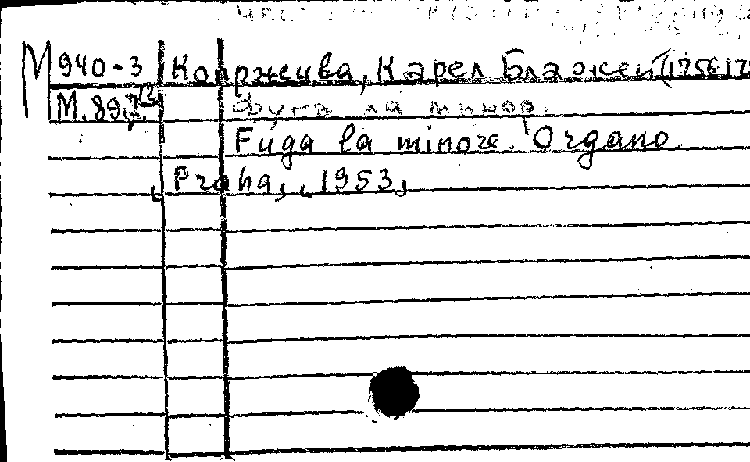 М 940-3 Копржива, Карел Блажей (1756-17
М. 89
Фуга ля минор.
Fuga la minore. Organo.
Praha, 1953,